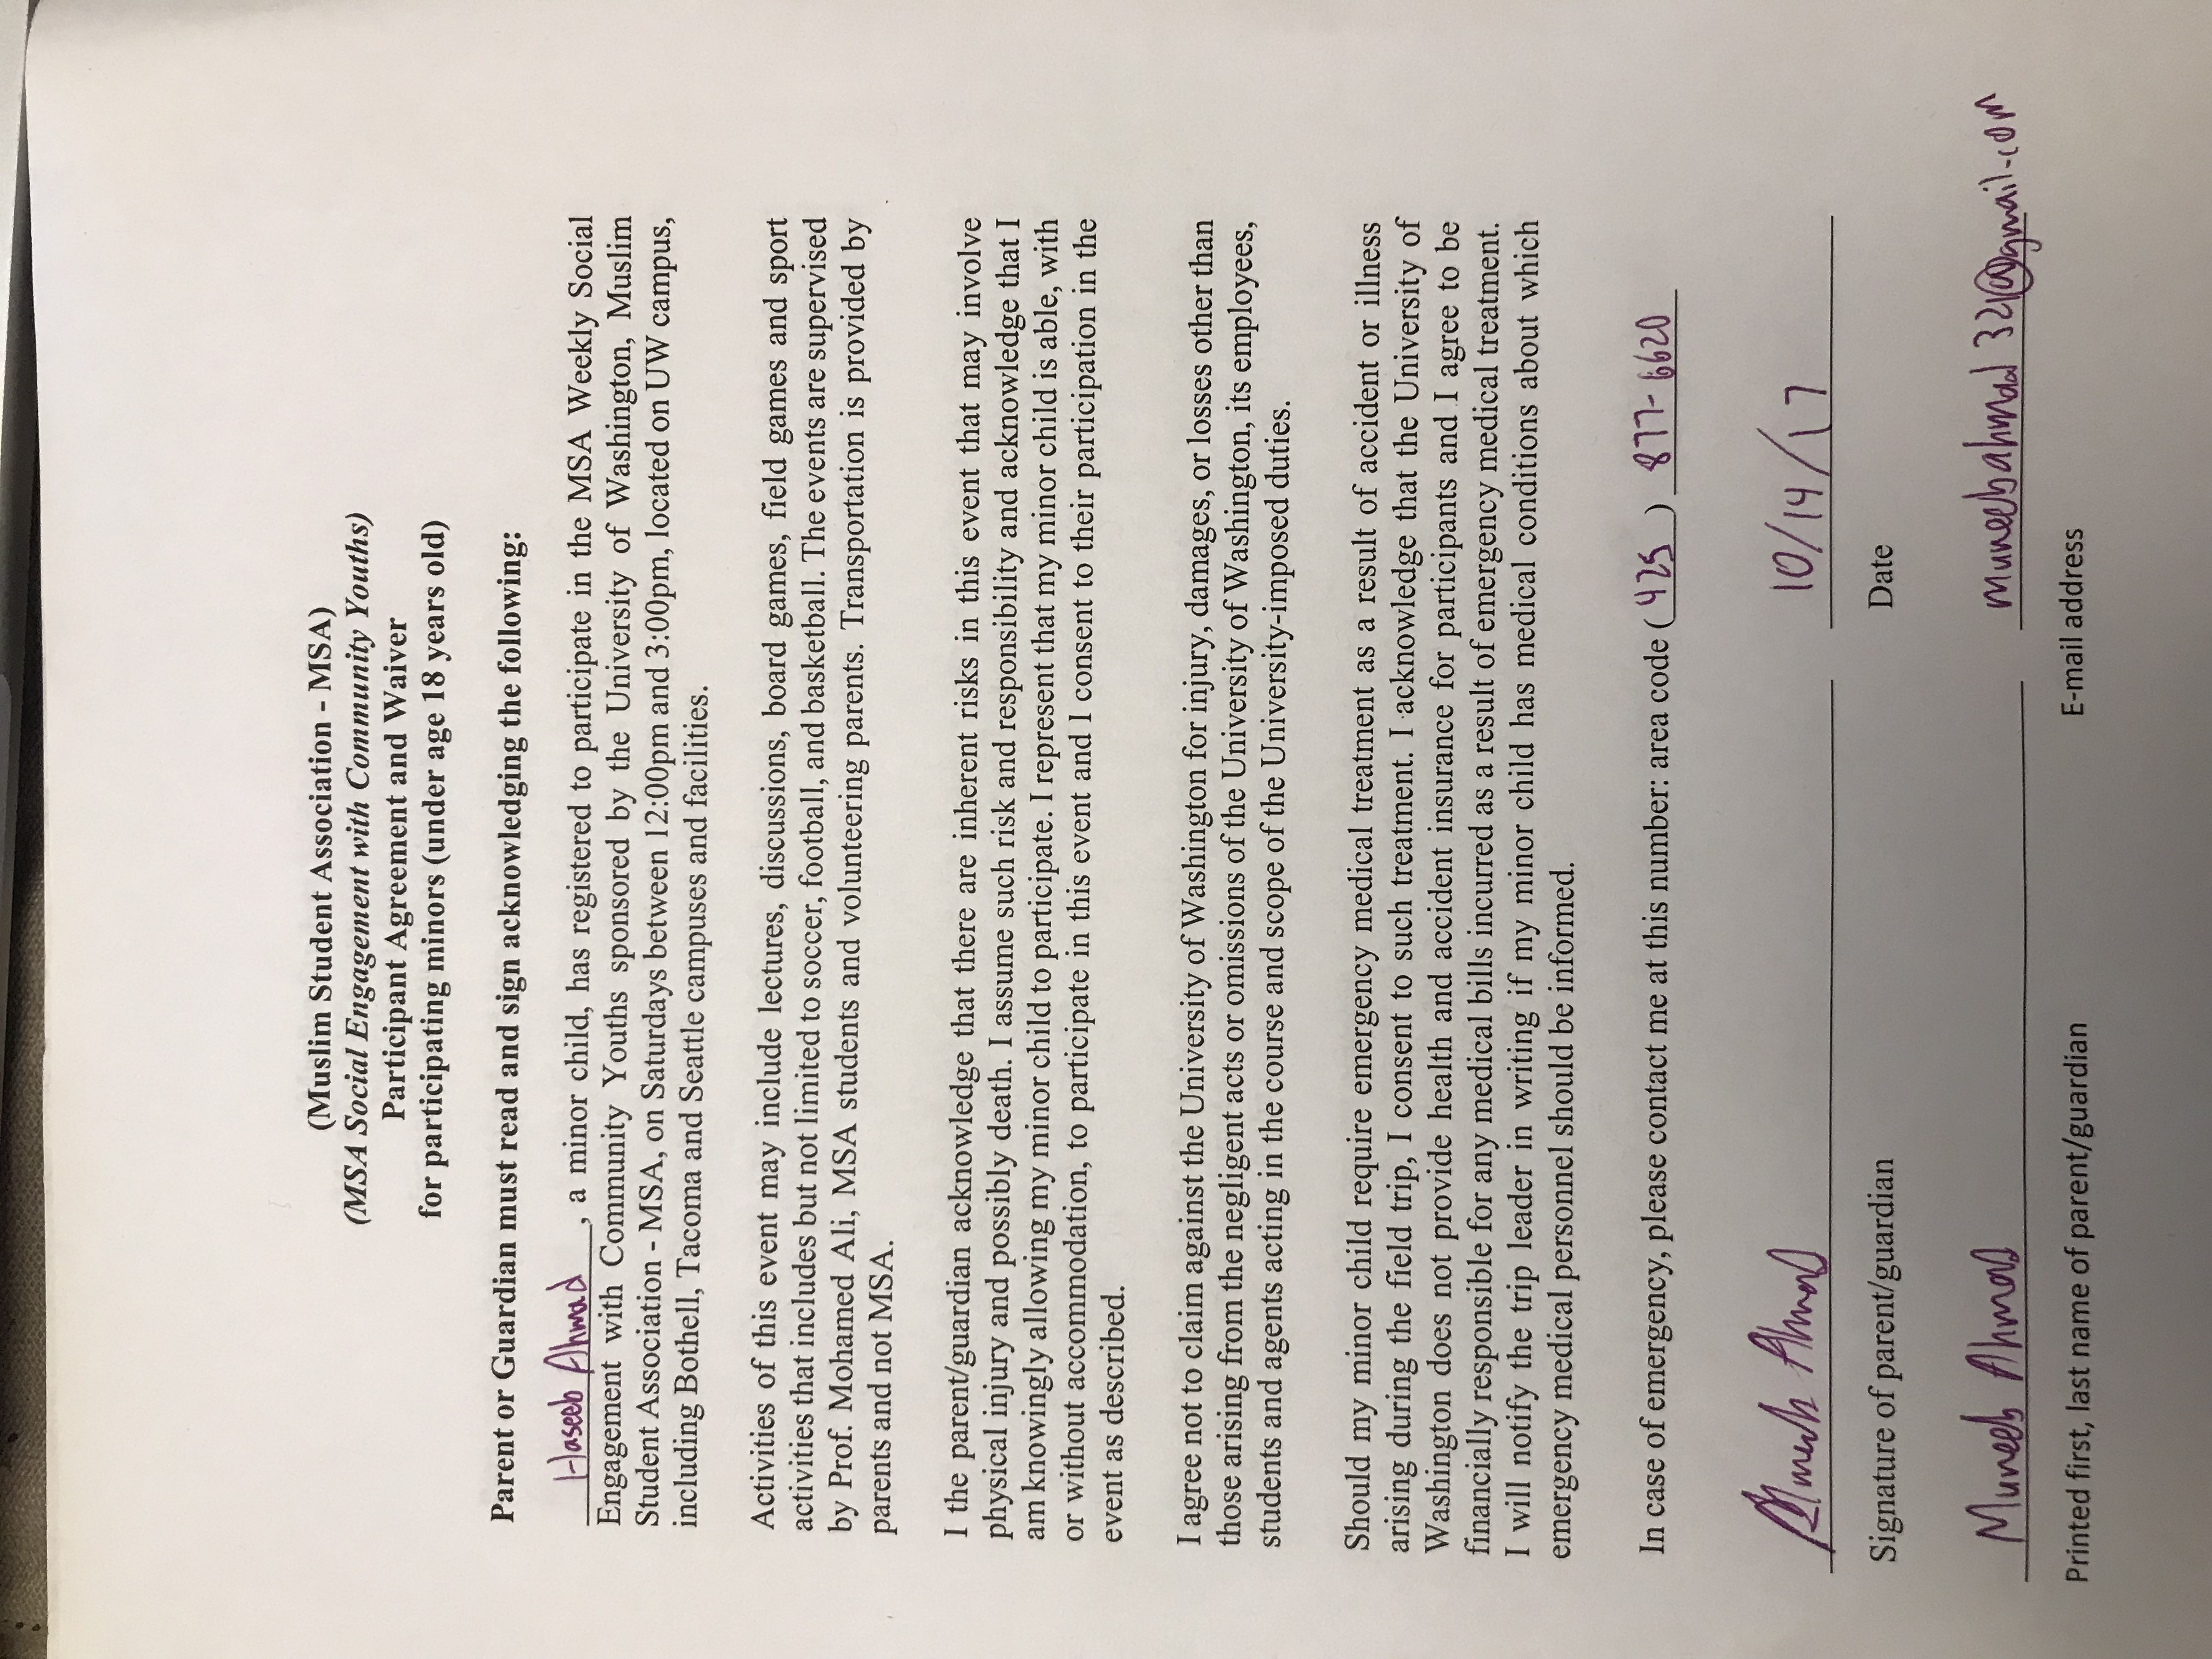 (Muslim Student Association - MSA)
(MSA Social Engagement with Community Youths)
Participant Agreement and Waiver
for participating minors (under age 18 years old)
Parent or Guardian must read and sign acknowledging the following:
Haseeb Ahmad, a minor child, has registered to participate in the MSA Weekly Social
Engagement with Community Youths sponsored by the University of Washington, Muslim
Student Association - MSA, on Saturdays between 12:00pm and 3:00pm, located on UW campus,
including Bothell, Tacoma and Seattle campuses and facilities.
Activities of this event may include lectures, discussions, board games, field games and sport
activities that includes but not limited to soccer, football, and basketball. The events are supervised
by Prof. Mohamed Ali, MSA students and volunteering parents. Transportation is provided by
parents and not MSA.
I the parent/guardian acknowledge that there are inherent risks in this event that may involve
physical injury and possibly death. I assume such risk and responsibility and acknowledge that I
am knowingly allowing my minor child to participate. I represent that my minor child is able, with
or without accommodation, to participate in this event and I consent to their participation in the
event as described.
I agree not to claim against the University of Washington for injury, damages, or losses other than
those arising from the negligent acts or omissions of the University of Washington, its employees,
students and agents acting in the course and scope of the University-imposed duties.
Should my minor child require emergency medical treatment as a result of accident or illness
arising during the field trip, I consent to such treatment. I acknowledge that the University of
Washington does not provide health and accident insurance for participants and I agree to be
financially responsible for any medical bills incurred as a result of emergency medical treatment.
I will notify the trip leader in writing if my minor child has medical conditions about which
emergency medical personnel should be informed.
In case of emergency, please contact me at this number: area code (425) 877-6620
Ahmad 10/14/17
Signature of parent/guardian Date
Muneeb Ahmad muneebahmad321@gmail.com
Printed first, last name of parent/guardian E-mail address